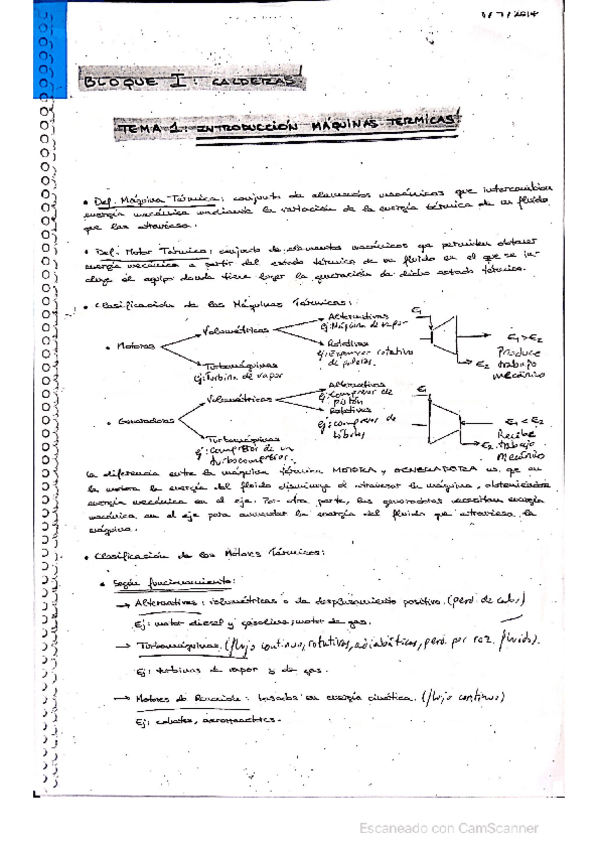 1/7/2014
BLOQUE I: CALDERAS
TEMA 1: INTRODUCCIÓN MÁQUINAS TERMICAS
• Def. Máquina Térmica: conjunto de elementos mecánicos que intercambian
energía mecánica mediante la variación de la energía térmica de un fluido
que las atraviesa.
• Def. Motor Térmico: conjunto de elementos mecánicos que permiten obtener
energía mecánica a partir del estado térmico de un fluido en el que se in-
cluye el equipo donde tiene lugar la generación de dicho estado térmico.
• Clasificación de las Máquinas Térmicas:
• Motoras
Volumétricas
Alternativas
ej: Máquina de vapor
Rotativas
ej: Expansor rotativo
de paletas.
Turbomáquinas
ej: Turbina de vapor
E1
E2
E1 > E2
Produce
trabajo
mecánico
• Generadoras
Volumétricas
Alternativas
ej: Compresor de
pistón
Rotativas
ej: compresor de
lóbulos
Turbomáquinas
ej: compresor de un
turbocompresor.
E1
E2
E1 < E2
Recibe
trabajo
mecánico
La diferencia entre la máquina térmica MOTORA y GENERADORA es, que en
la motora la energía del fluido disminuye al atravesar la máquina, obteniéndose
energía mecánica en el eje. Por otra parte, las generadoras necesitan energía
mecánica en el eje para aumentar la energía del fluido que atraviesa la
máquina.
• Clasificación de los Motores Térmicos:
• Según funcionamiento:
→ Alternativas: volumétricas o de desplazamiento positivo. (perd. de calor)
Ej: motor diesel y gasolina, motor de gas.
→ Turbomáquinas. (flujo continuo, rotativas, adiabáticas, perd. por roz. fluido).
Ej: turbinas de vapor y de gas.
→ Motores de Reacción: basados en energía cinética. (flujo continuo)
Ej: cohetes, aeroreactores.
Escaneado con CamScanner